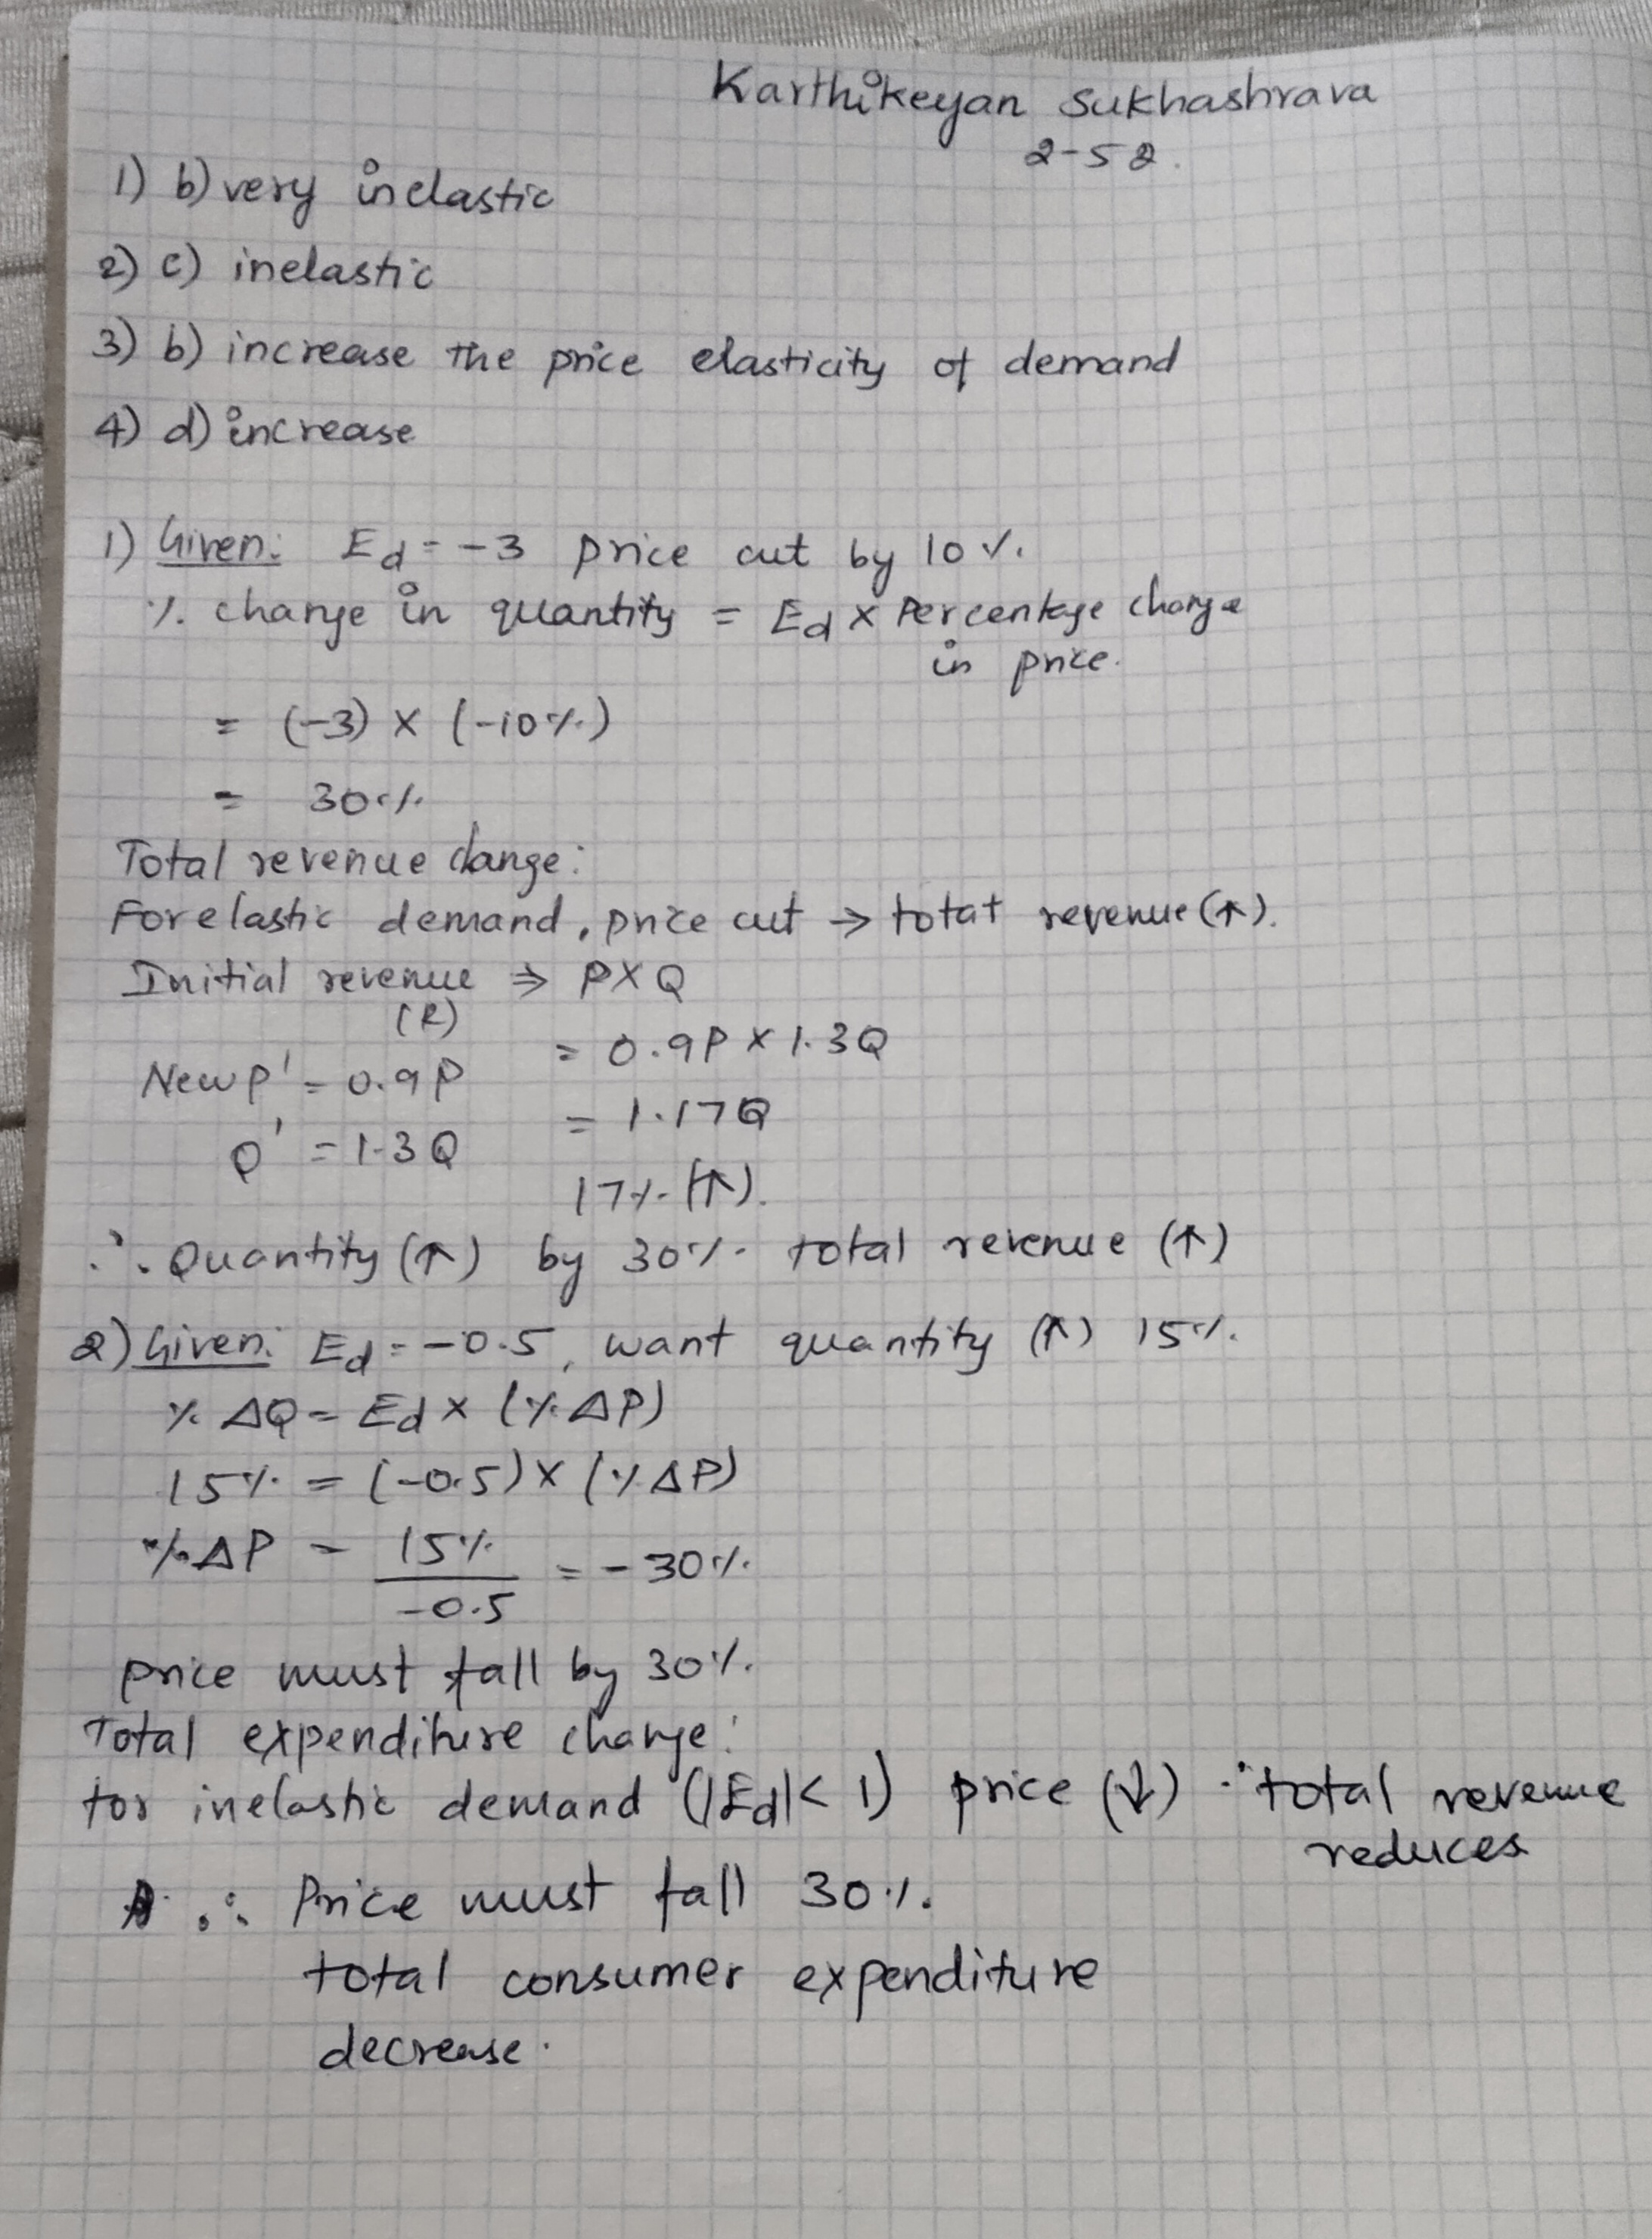 Karthikeyan Sukhashrava
2-52.
1) b) very inelastic
2) c) inelastic
3) b) increase the price elasticity of demand
4) d) increase
1) Given: Ed = -3 price cut by 10%.
% change in quantity = Ed x Percentage change
in price.
= (-3) x (-10%)
= 30%
Total revenue change:
For elastic demand, price cut → total revenue (↑).
Initial revenue ⇒ PXQ
(R)
= 0.9P x 1.3Q
New P' = 0.9P
= 1.17Q
Q' = 1.3Q
17% (↑).
∴ Quantity (↑) by 30% total revenue (↑)
2) Given: Ed = -0.5, want quantity (↑) 15%.
% ΔQ = Ed x (% ΔP)
15% = (-0.5) x (% ΔP)
% ΔP = 15% / -0.5 = -30%.
price must fall by 30%.
Total expenditure change:
for inelastic demand (|Ed| < 1) price (↓) ∴ total revenue
reduces
∴ Price must fall 30%.
total consumer expenditure
decrease.